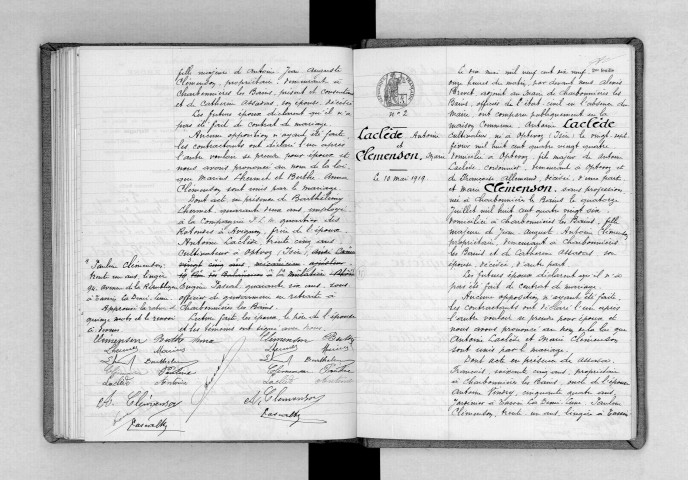 fille majeure de Antoine Jean Auguste
Clémenson, propriétaire, demeurant à
Charbonnières les Bains, présent et consentant
et de Catherin Assavas, son épouse, décédée
Les futurs époux déclarent qu'il n'a
pas été fait de contrat de mariage.
Aucune opposition n'ayant été faite
les contractants ont déclaré l'un après
l'autre vouloir se prendre pour époux et
nous avons prononcé au nom de la loi
que Marius Lhermet et Berthe
Clémenson sont unis par le mariage.
Dont acte en présence de Barthélemy
Lhermet, quarante deux ans, employé
à la Compagnie P.L.M. quartier des
Rotondes à Avignon, frère de l'époux
Antoine Laclède trente cinq ans
Cultivateur à Optevoz (Isère)
vingt cinq ans, mécanicien
Eugène Pascal, quarante six ans, sous
officier de gendarmerie en retraite à
Charbonnières les Bains.
Lecture faite, les époux, le père de l'épouse
et les témoins ont signé avec nous.
Pauline Clémenson,
trente un ans, lingère
avenue de la République
à Tassin La Demi-Lune
quinze mots et le renvoi
Clémenson
Marius
Barthélemy
Laclède Antoine
A. Clémenson
Clemenson
Marius
Barthélemy
Laclède
A. Clemenson
N° 2
Laclède Antoine
et
Clémenson, Marie
le 10 mai 1919.
Le dix mai mil neuf cent dix neuf
onze heures du matin, par devant nous Alexis
adjoint au Maire de Charbonnières les
Bains, officier de l'état-civil en l'absence du
maire ont comparu publiquement en la
maison commune: Antoine Laclède
Cultivateur né à Optevoz (Isère) le vingt sept
février mil huit cent quatre vingt quatre
domicilié à Optevoz, fils majeur de Antoine
Laclède, cordonnier, demeurant à Optevoz et
de Françoise Allemand, décédée, d'une part
et Marie Clémenson, sans profession
née à Charbonnières les Bains le quatorze
Juillet mil huit cent quatre vingt six
domiciliée à Charbonnières les Bains, fille
majeure de Jean August Antoine Clémenson
propriétaire, demeurant à Charbonnières
les Bains et de Catherin Assavas son
épouse décédée, d'autre part.
Les futurs époux déclarent qu'il n'a
pas été fait de contrat de mariage.
Aucune opposition n'ayant été faite,
les contractants ont déclaré l'un après
l'autre vouloir se prendre pour époux et
nous avons prononcé au nom de la loi que
Antoine Laclède et Marie Clémenson
sont unis par le mariage.
Dont acte en présence de Assavas,
François, soixante cinq ans, propriétaire
à Charbonnières les Bains, oncle de l'épouse
Antoine Vindry, cinquante quatre ans,
à Tassin La Demi-Lune, Pauline
Clémenson, trente un ans, lingère à Tassin